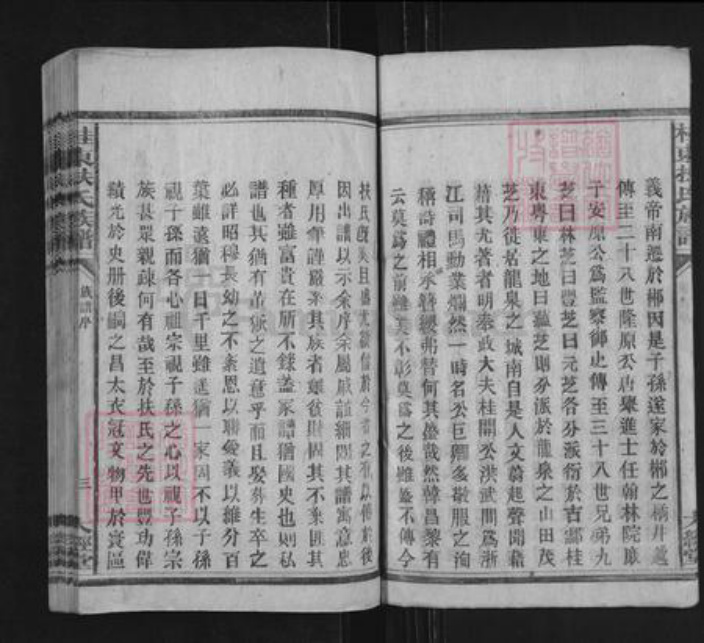 桂東扶氏族譜
義帝南遷於郴因是子孫遂家於郴之橋井越
傳至二十八世隆原公唐舉進士任翰林院庶
子安原公爲監察御史傳至三十八世兄弟九
芝曰林芝曰豐芝曰元芝各分派衍於吉酃桂
東粵東之地曰蘊芝則分派於龍泉之山田茂
芝乃徙居龍泉之城南自是人文蔚起聲聞藉
藉其尤著者明奉政大夫桂開公洪武間爲浙
江司馬勳業爛然一時名公巨卿多敬服之洵
稱詩禮相承簪纓弗替何其盛哉然韓昌黎有
云莫爲之前雖美不彰莫爲之後雖盛不傳今
大經堂
扶氏既美且盛尤從信於今者之不以傳於後
因出譜以示余序余屬戚誼細閱其譜寓意忠
厚用筆謹嚴系其族者雖貧財困其不棄匪其
種者雖富貴在所不錄蓋家譜猶國史也則私
譜也其猶有董狐之遺意乎而且娶葬生卒之
必詳昭穆長幼之不紊恩以聯愛義以維分百
葉雖遠猶一日千里雖遙猶一家固不以子孫
視子孫而各心祖宗視子孫之心以視子孫宗
族甚眾親疎何有哉至於扶氏之先世豐功偉
績光於史册後嗣之昌太衣冠文物甲於寰區
桂東扶氏族譜
族譜序
三
大經堂